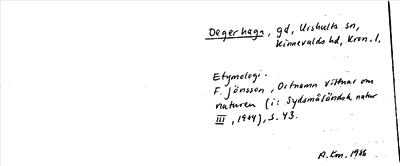 Dagerhaga, gd, Urshults sn,
Kinnevalds hd, Kron. l.
Etymologi.
F. Jönsson, Ortnamn vittnar om
naturen (i: Sydsmåländsk natur
III, 1944), s. 43.
A.Km. 1986